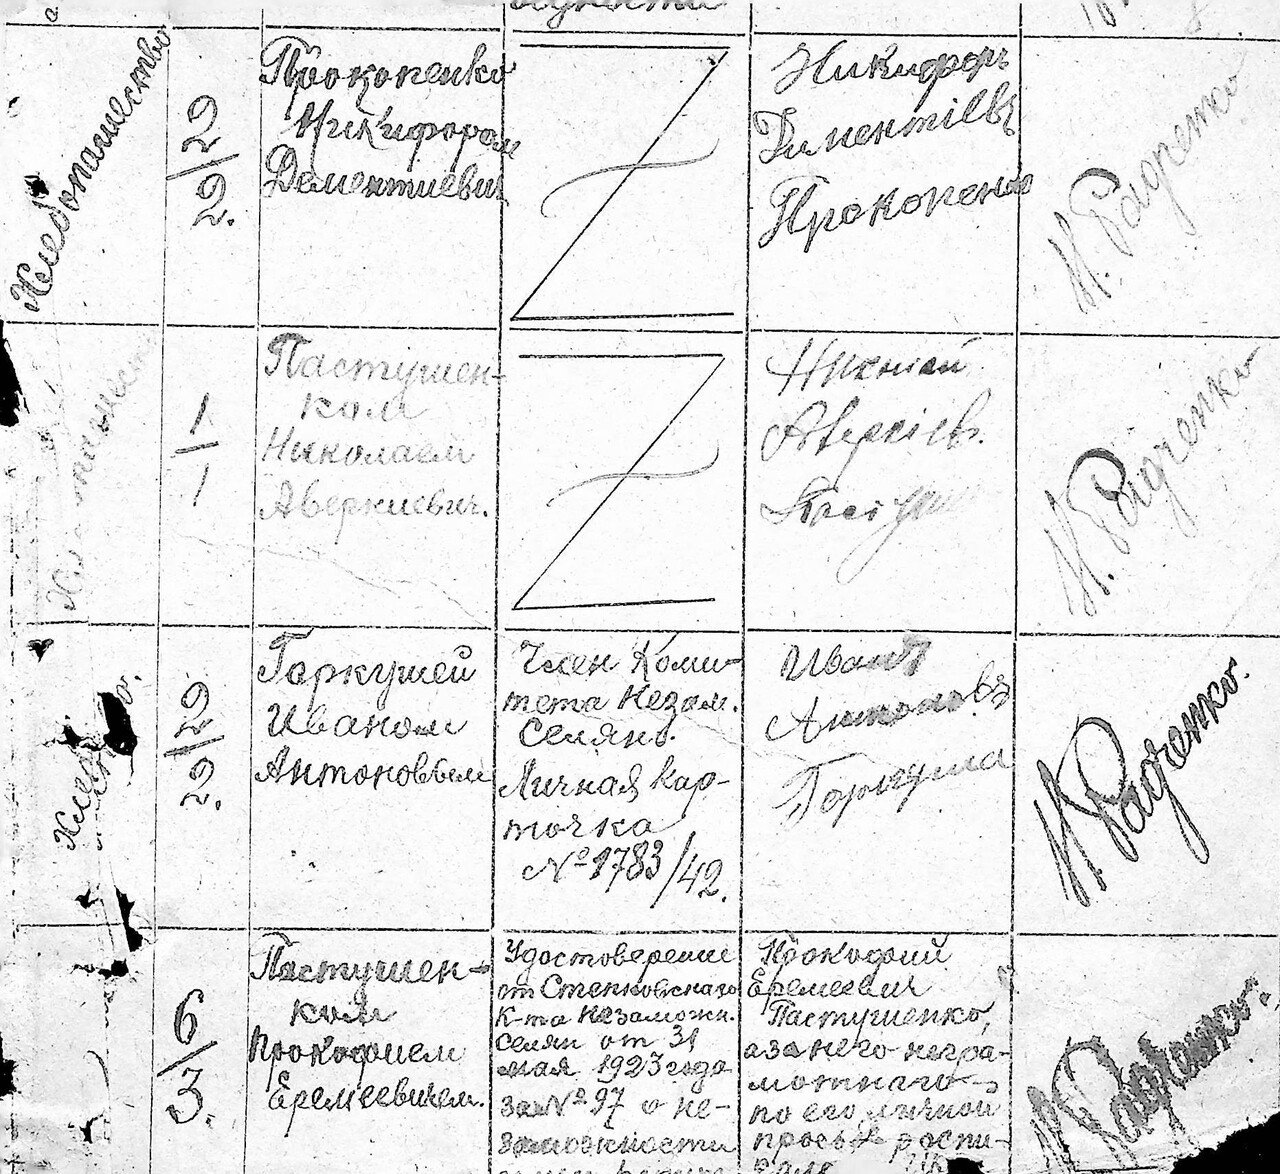 Хлебопашество
2/2.
Прокопенко
Никифором
Дементиевич
Никифоръ
Диментіевъ
Прокопенко
И. Радченко
1/1
Пастушен-
ком
Николаем
Аверкиевич.
Аверкіев.
И. Радченко
Хлеб
2/2.
Гаркушей
Иваном
Антоновьем
Член Коми-
тета Незам.
Селянъ.
Личная кар-
точка
№ 1783/42.
Иванъ
Антоновъ
Гаркуша
И. Радченко.
6/3.
Пастушен-
ком
Прокофием
Еремеевичем.
Удостоверение
от Степковскаго
К-та незаможн.
селян от 31
мая 1923 года
за № 97 о не-
заможности
Прокофий
Еремеевич
Пастушенко,
а за него негра-
мотнаго
по его личной
просьбе распи-
И. Радченко.